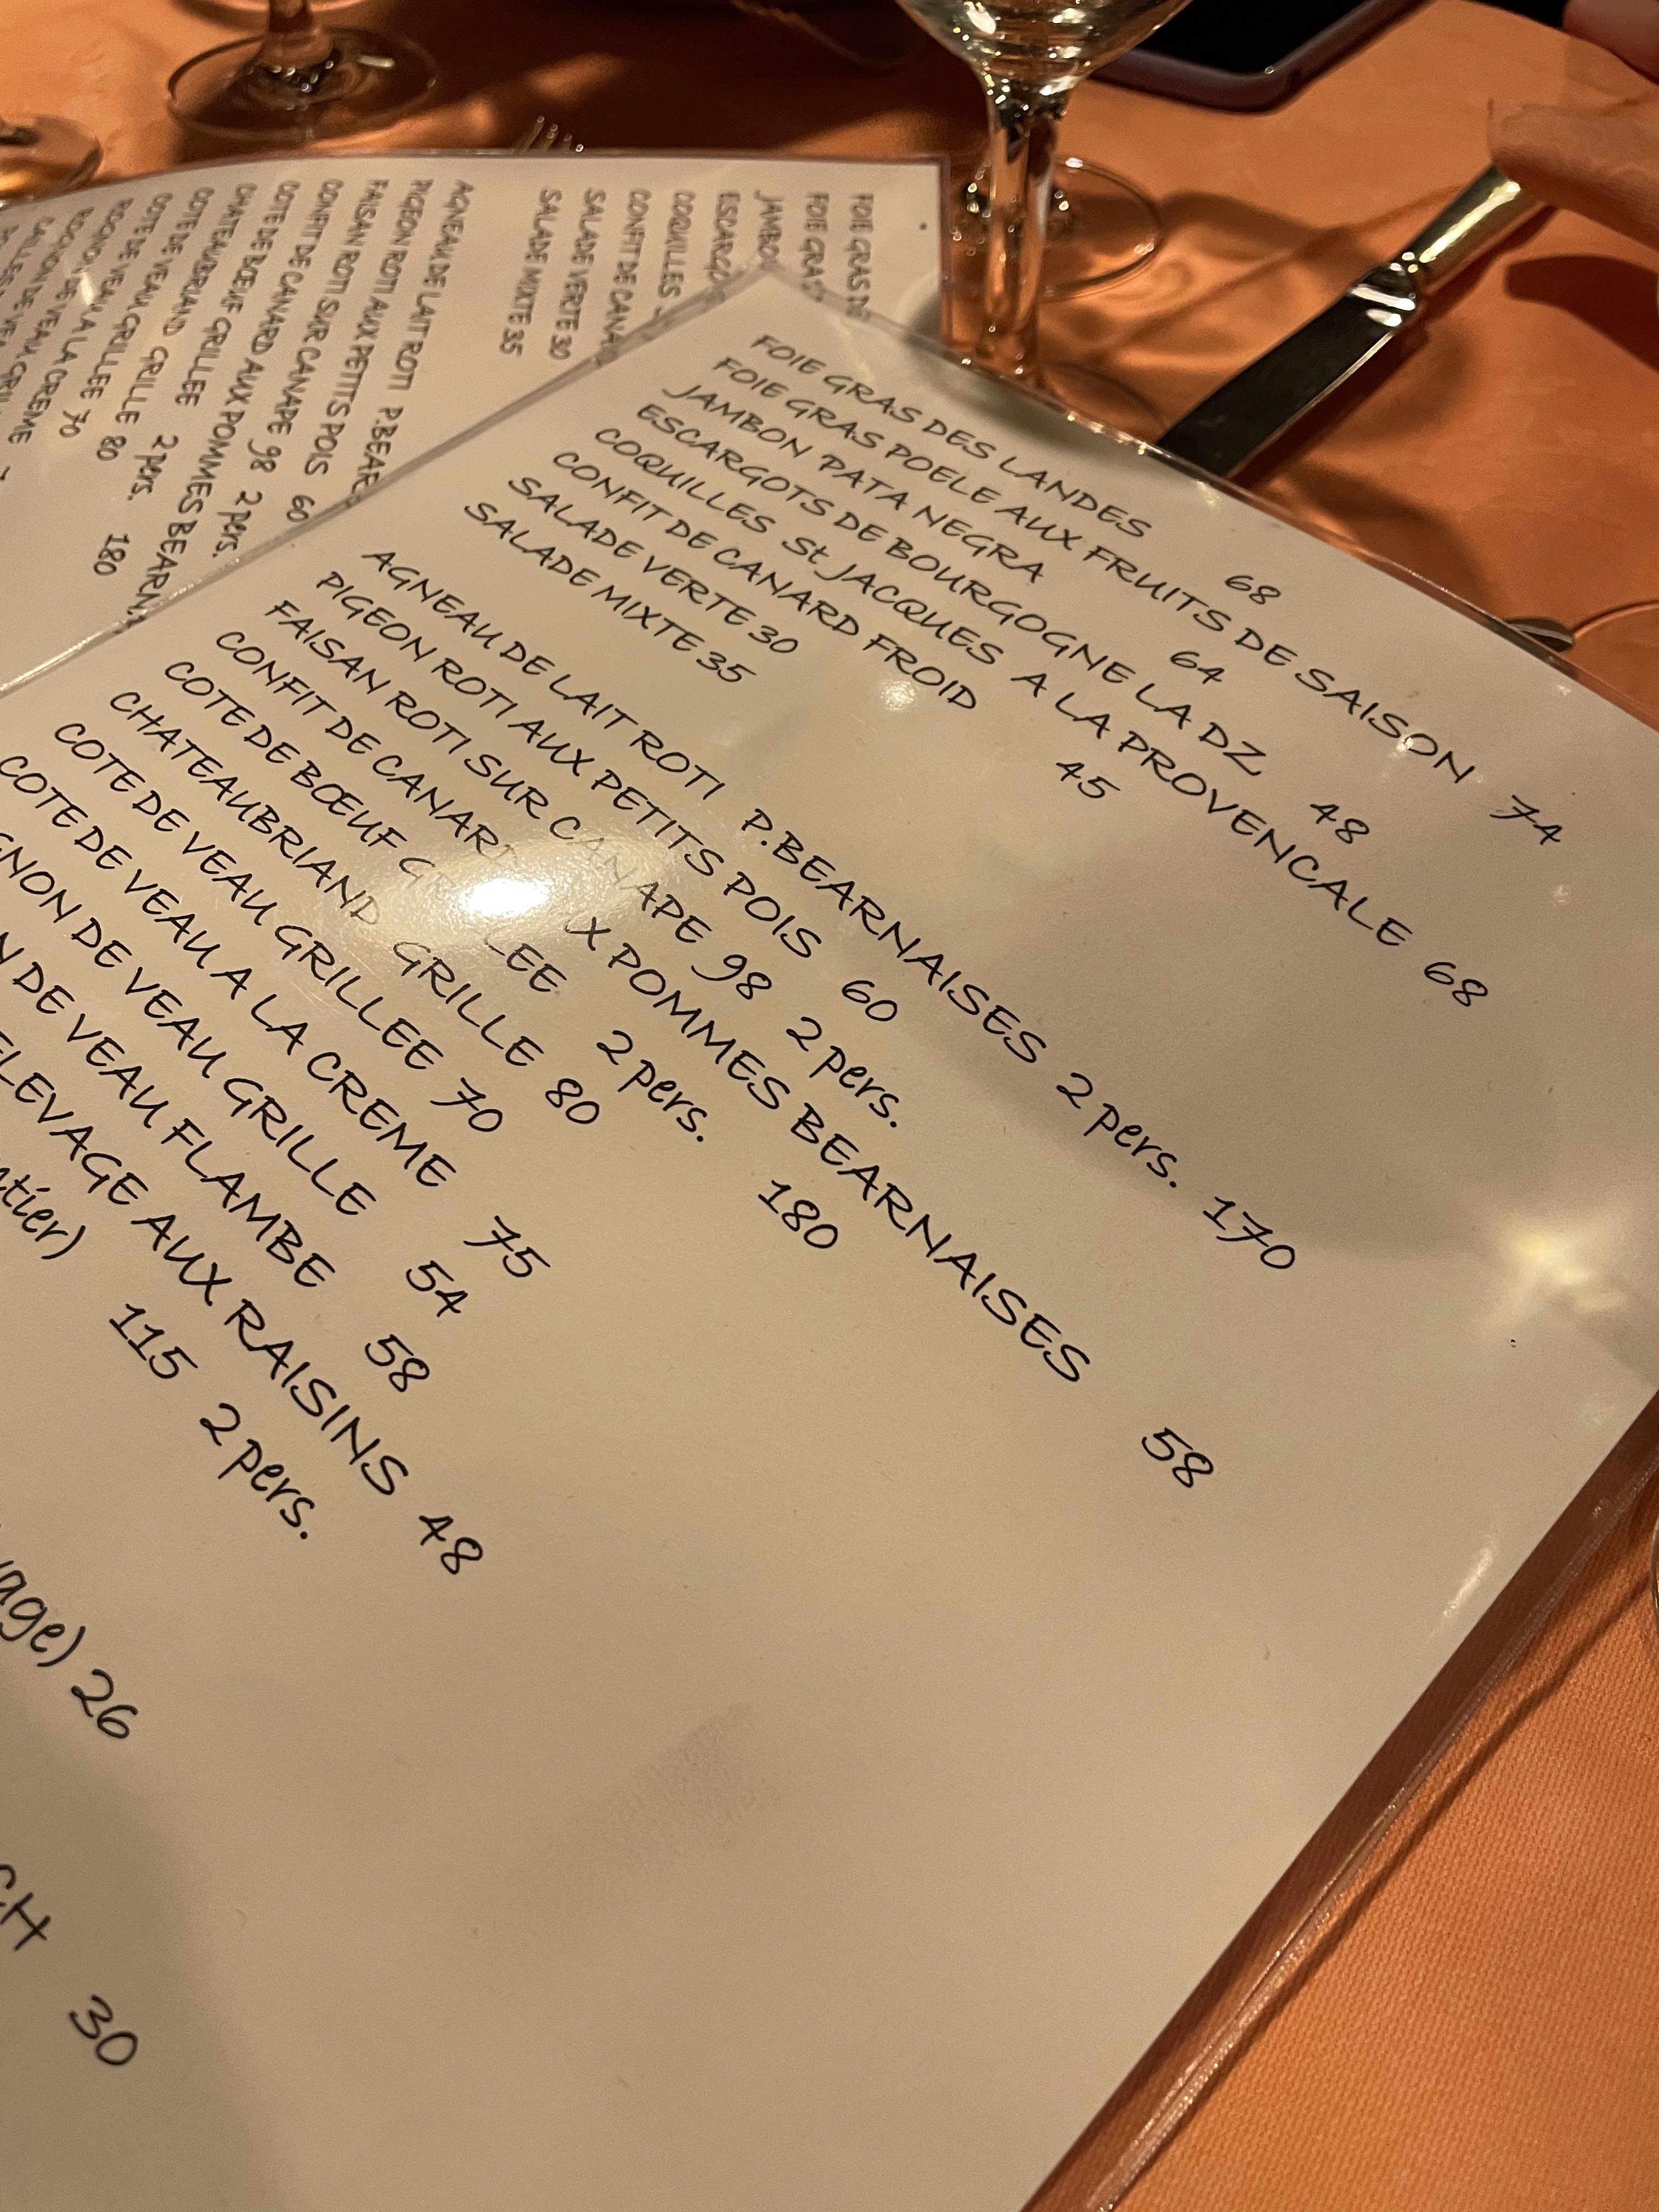 FOIE GRAS DES LANDES 68
FOIE GRAS POELE AUX FRUITS DE SAISON 74
JAMBON PATA NEGRA 64
ESCARGOTS DE BOURGOGNE LA DZ 48
COQUILLES St JACQUES A LA PROVENCALE 68
CONFIT DE CANARD FROID 45
SALADE VERTE 30
SALADE MIXTE 35
AGNEAU DE LAIT ROTI P.BEARNAISES 2 pers. 170
PIGEON ROTI AUX PETITS POIS 60
FAISAN ROTI SUR CANAPE 98 2 pers.
CONFIT DE CANARD AUX POMMES BEARNAISES 58
COTE DE BŒUF GRILLEE 2 pers. 180
CHATEAUBRIAND GRILLE 80
COTE DE VEAU GRILLEE 70
COTE DE VEAU A LA CREME 75
GNON DE VEAU GRILLE 54
N DE VEAU FLAMBE 58
ELEVAGE AUX RAISINS 48
tier) 115 2 pers.
vage) 26
CH
30
FOIE GRAS
FOIE GRAS
JAMBO
ESCARGO
COQUILLES
CONFIT DE CANA
SALADE VERTE 30
SALADE MIXTE 35
AGNEAU DE LAIT ROTI P.BEAR
PIGEON ROTI AUX PETITS POIS 60
FAISAN ROTI SUR CANAPE 98 2 pers.
CONFIT DE CANARD AUX POMMES BEARN
COTE DE BŒUF GRILLEE 2 pers. 180
CHATEAUBRIAND GRILLE 80
COTE DE VEAU GRILLEE 70
COTE DE VEAU A LA CREME
ROGNON DE VEAU GRIL